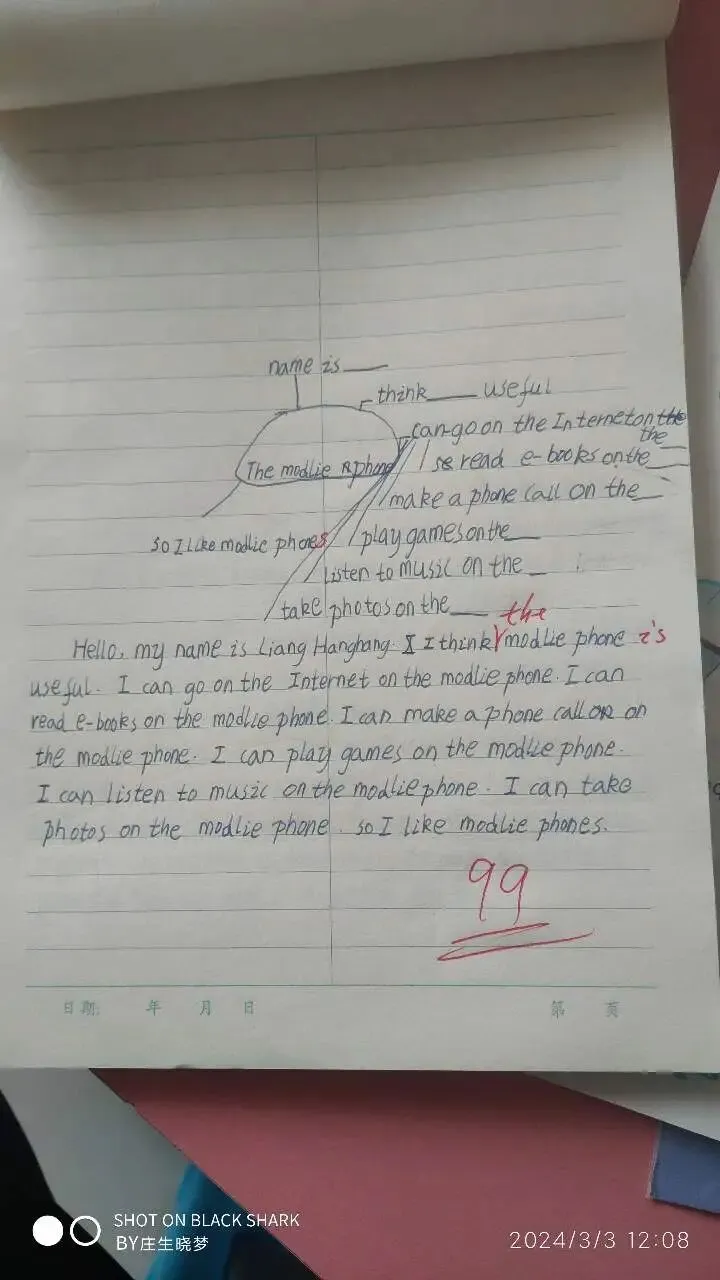 name is ___
think ___ useful
can go on the Internet on the
the
read e-books on the ___
The modlie phone
make a phone call on the ___
so I like modlie phones
play games on the ___
listen to music on the ___
take photos on the ___
the
Hello, my name is Liang Hanghang. I think modlie phone is
useful. I can go on the Internet on the modlie phone. I can
read e-books on the modlie phone. I can make a phone call on
the modlie phone. I can play games on the modlie phone.
I can listen to music on the modlie phone. I can take
photos on the modlie phone. so I like modlie phones.
99
日期: 年 月 日 第 页
SHOT ON BLACK SHARK
BY庄生晓梦
2024/3/3 12:08